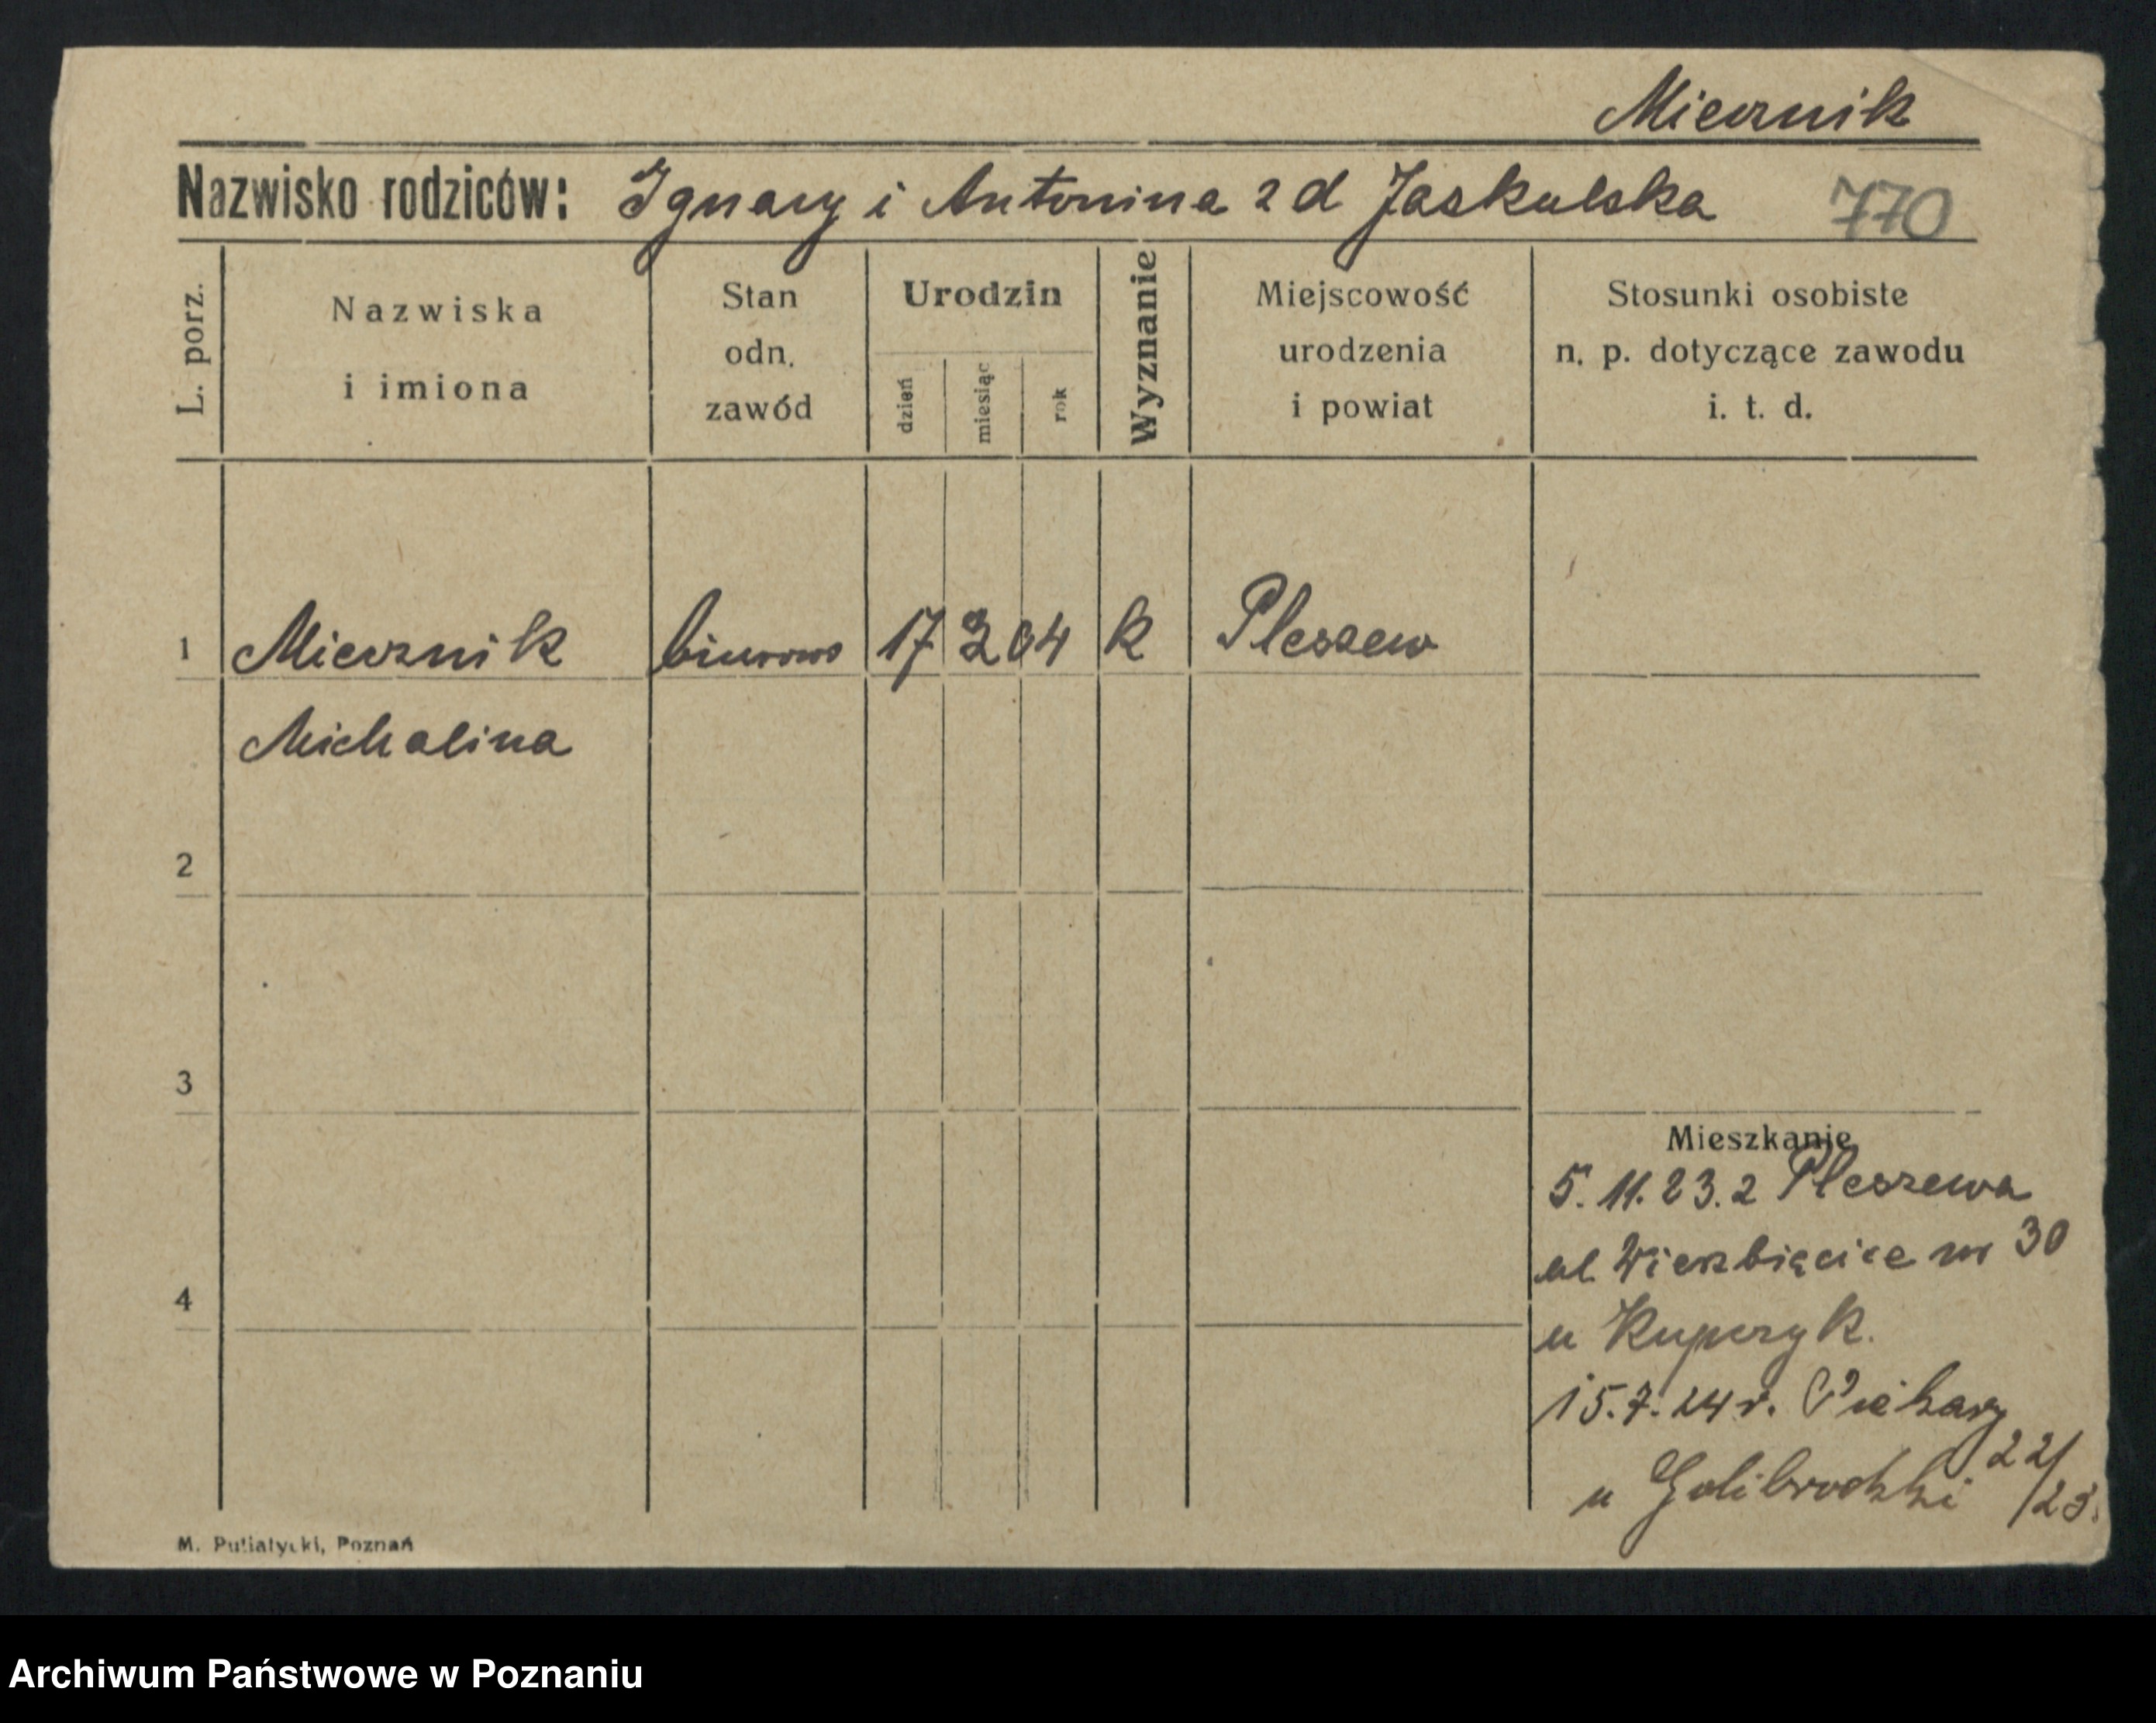 Miernik
Nazwisko rodziców: Ignacy i Antonina z d Jaskulska 770
L. porz.
Nazwiska i imiona
Stan odn. zawód
Urodzin
dzień
miesiąc
rok
Wyznanie
Miejscowość urodzenia i powiat
Stosunki osobiste n. p. dotyczące zawodu i. t. d.
1 Miernik biurowa 17 2 04 k Pleszew
Michalina
2
3
Mieszkanie
5. 11. 23. z Pleszewa
ul. Wierzbięcice nr 30
4
u Kupczyk.
15.7.24 r. Piekary
22/23.
u Golibrodzki
M. Putiatycki, Poznań
Archiwum Państwowe w Poznaniu